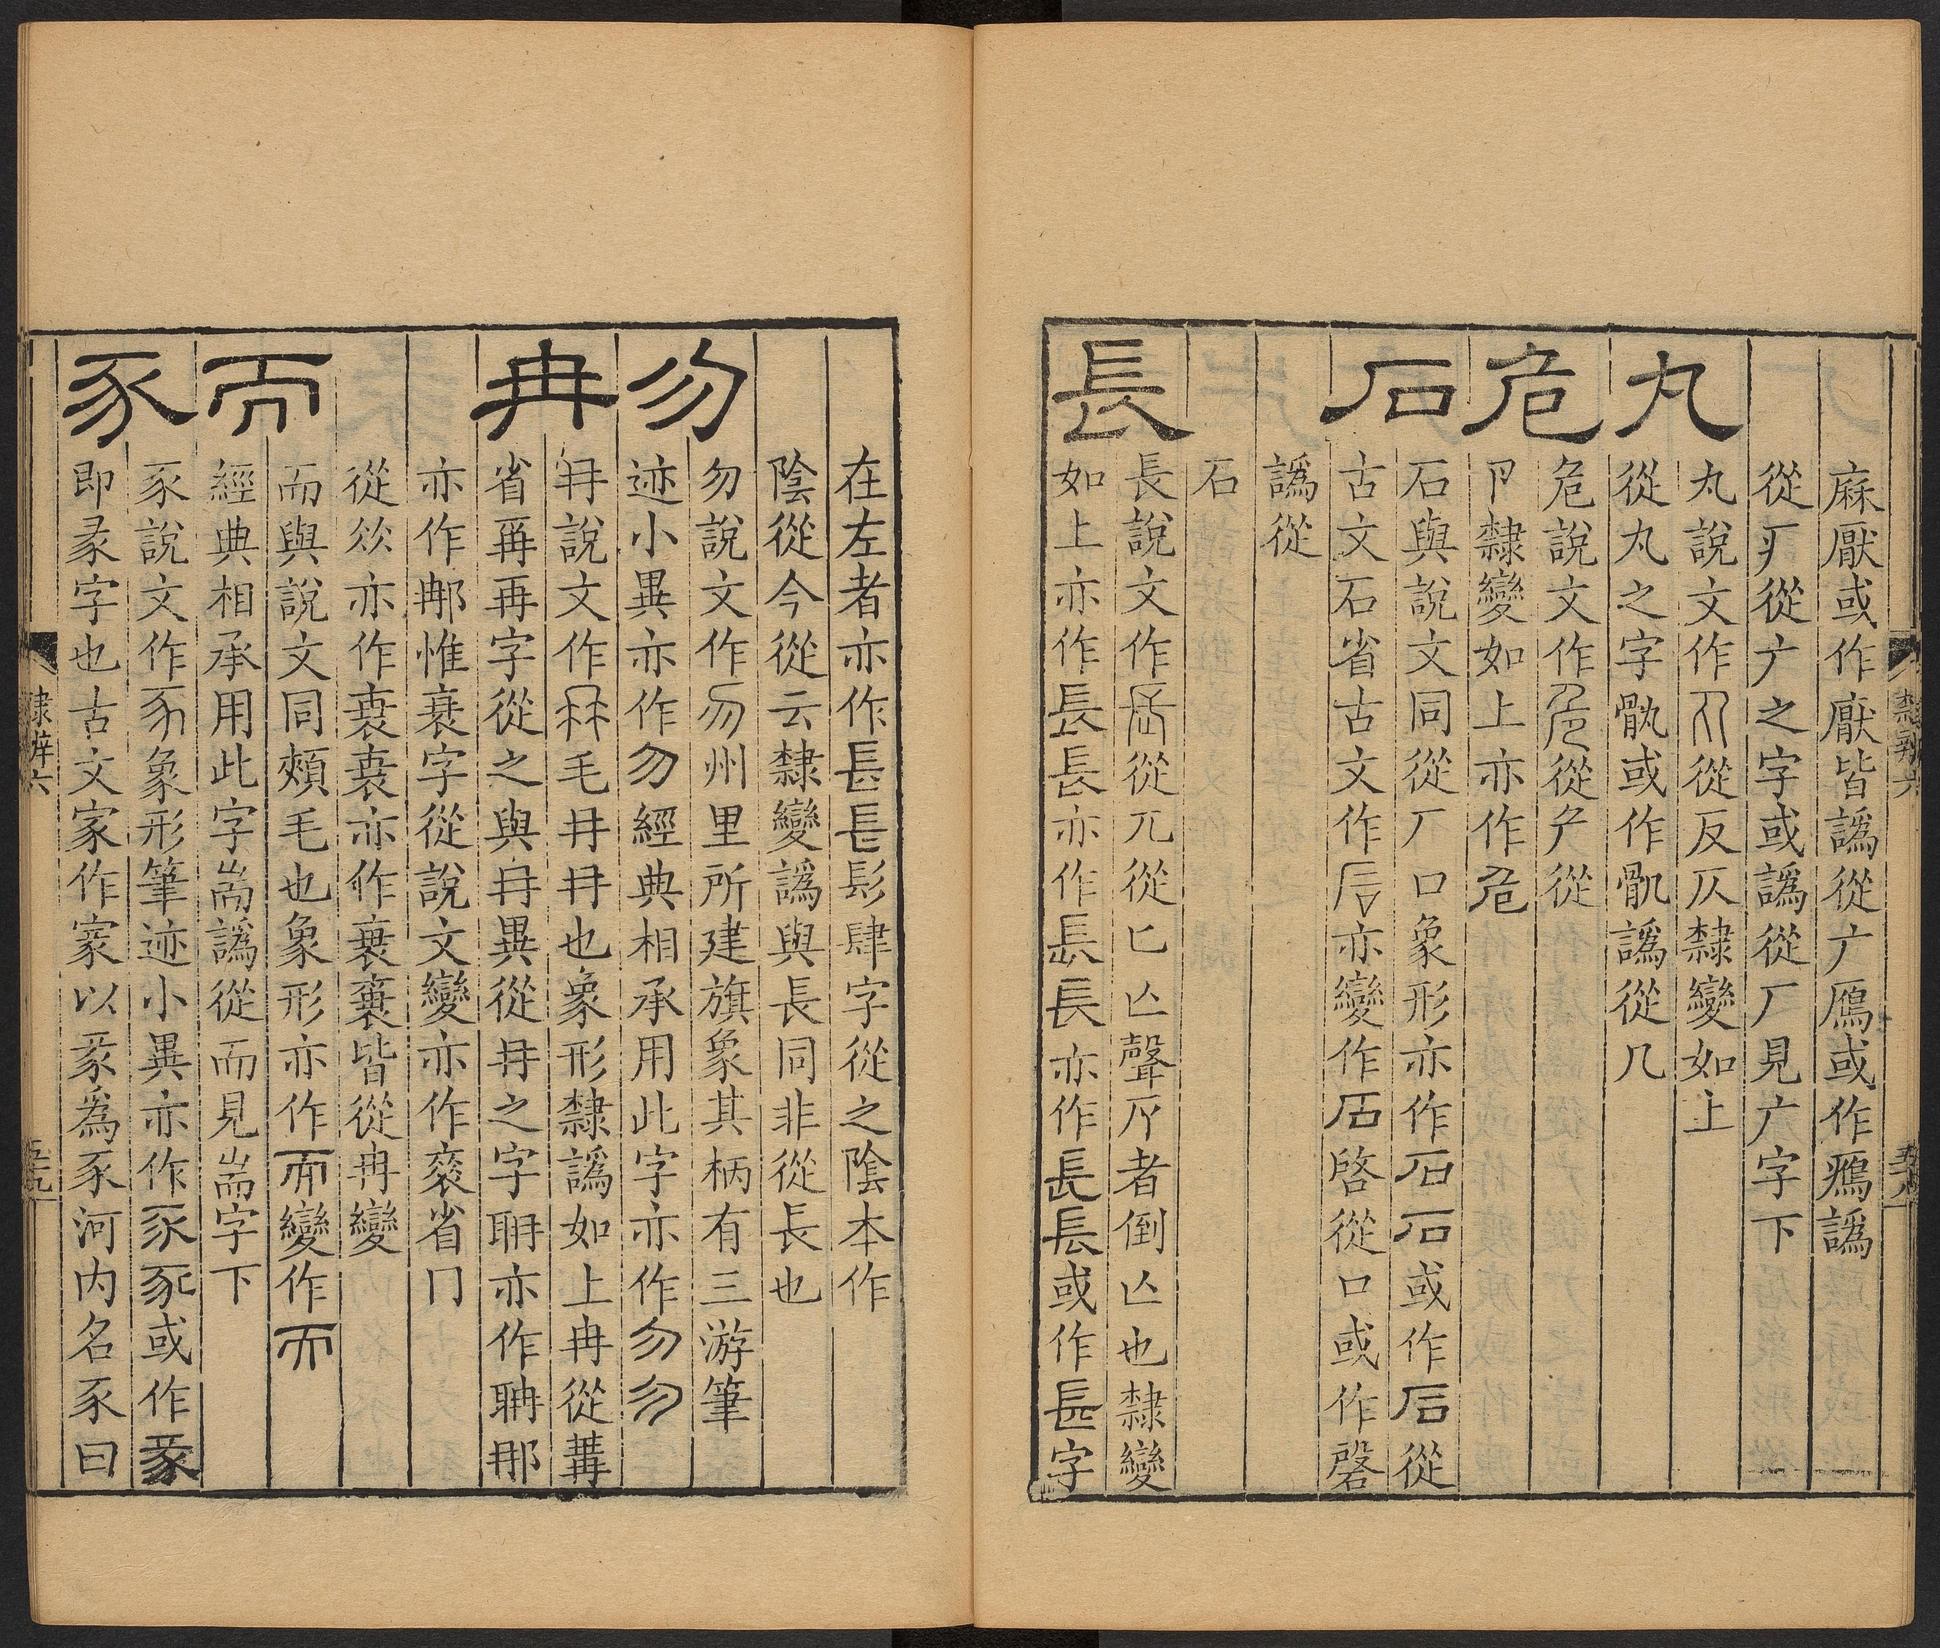 麻厭或作厰皆譌從广鴈或作㾑譌
從疒從广之字或譌從厂見广字下
丸
丸說文作從反仄隸變如上
從丸之字骫或作骩譌從几
危
危說文作從⺈從
卪隸變如上亦作危
石
石與說文同從厂口象形亦作石石或作后從
古文石省古文作亦變作启從口或作磬
譌從
石
長
長說文作從兀從匕亾聲者倒亾也隸變
如上亦作長長亦作長長亦作長長或作镸字
在左者亦作镸镸髟肆字從之陰本作
陰從今從云隸變譌與長同非從長也
勿
勿說文作勿州里所建旗象其柄有三游筆
迹小異亦作勿經典相承用此字亦作勿勿
冉
冄說文作毛冄冄也象形隸譌如上冉從冓
省再字從之與冄異從冄之字耼亦作聃那
亦作惟衰字從說文變亦作衺省冂
從㷋亦作衰衰亦作衰衰皆從冉變
而
而與說文同頰毛也象形亦作而變作而
經典相承用此字耑譌從而見耑字下
豕
豕說文作象形筆迹小異亦作豕豕或作彖
即彖字也古文家作家以豕為豕河內名豕曰
隸辨六
隸辨六